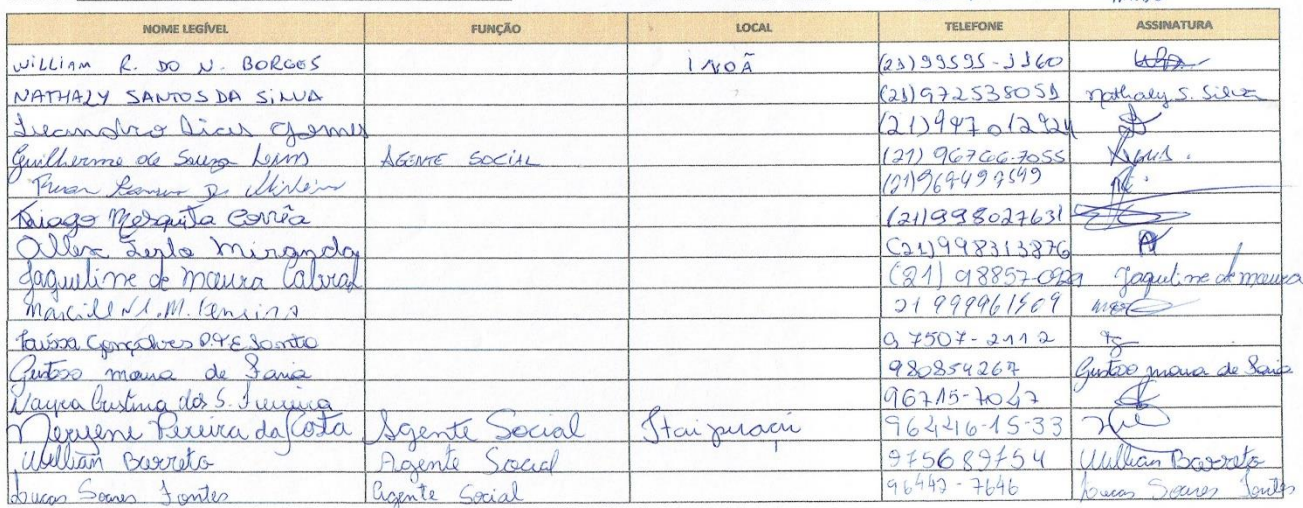 NOME LEGÍVEL FUNÇÃO LOCAL TELEFONE ASSINATURA
WILLIAM R. DO N. BORGES INOÃ (21)99595-1160
NATHALY SANTOS DA SILVA (21)972538051 Nathaly S. Silva
Leandro Dias Gomes (21)947012924
Guilherme de Souza Lins AGENTE SOCIAL (21) 96766.7055
(21)969497549
Thiago Mesquita Corrêa (21)998027631
Miranda (21)998313876
Jaqueline de Moura Cabral (21) 98857-0929 Jaqueline de Moura
21 999961569
Gonçalves 9 7507-2112
Gustavo moura de Faria 980854267 Gustavo moura de Faria
Nayra Cristina dos S. Ferreira 96715-7047
Meryene Pereira da Costa Agente Social Itaipuaçu 96446-15-33
Willian Barreto Agente Social 975689754 Willian Barreto
Lucas Soares Fontes agente Social 96442-7646 Lucas Soares Fontes